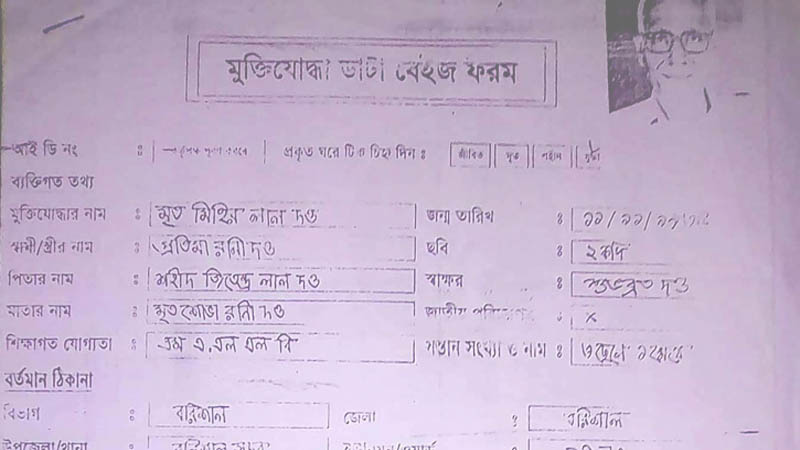 মুক্তিযোদ্ধা ডাটা বেইজ ফরম
আই ডি নং : প্রকৃত ঘরে টিক চিহ্ন দিন : জীবিত মৃত
ব্যক্তিগত তথ্য
মুক্তিযোদ্ধার নাম : মৃত মিহির লাল দত্ত জন্ম তারিখ :
স্বামী/স্ত্রীর নাম : প্রতিমা রানী দত্ত ছবি : ২ কপি
পিতার নাম : শহীদ জিতেন্দ্র লাল দত্ত স্বাক্ষর : শুভব্রত দত্ত
মাতার নাম : মৃত শোভা রানী দত্ত : x
শিক্ষাগত যোগ্যতা : এম এ, এল এল বি সন্তান সংখ্যা ও নাম :
বর্তমান ঠিকানা
বিভাগ : বরিশাল জেলা : বরিশাল
উপজেলা/থানা